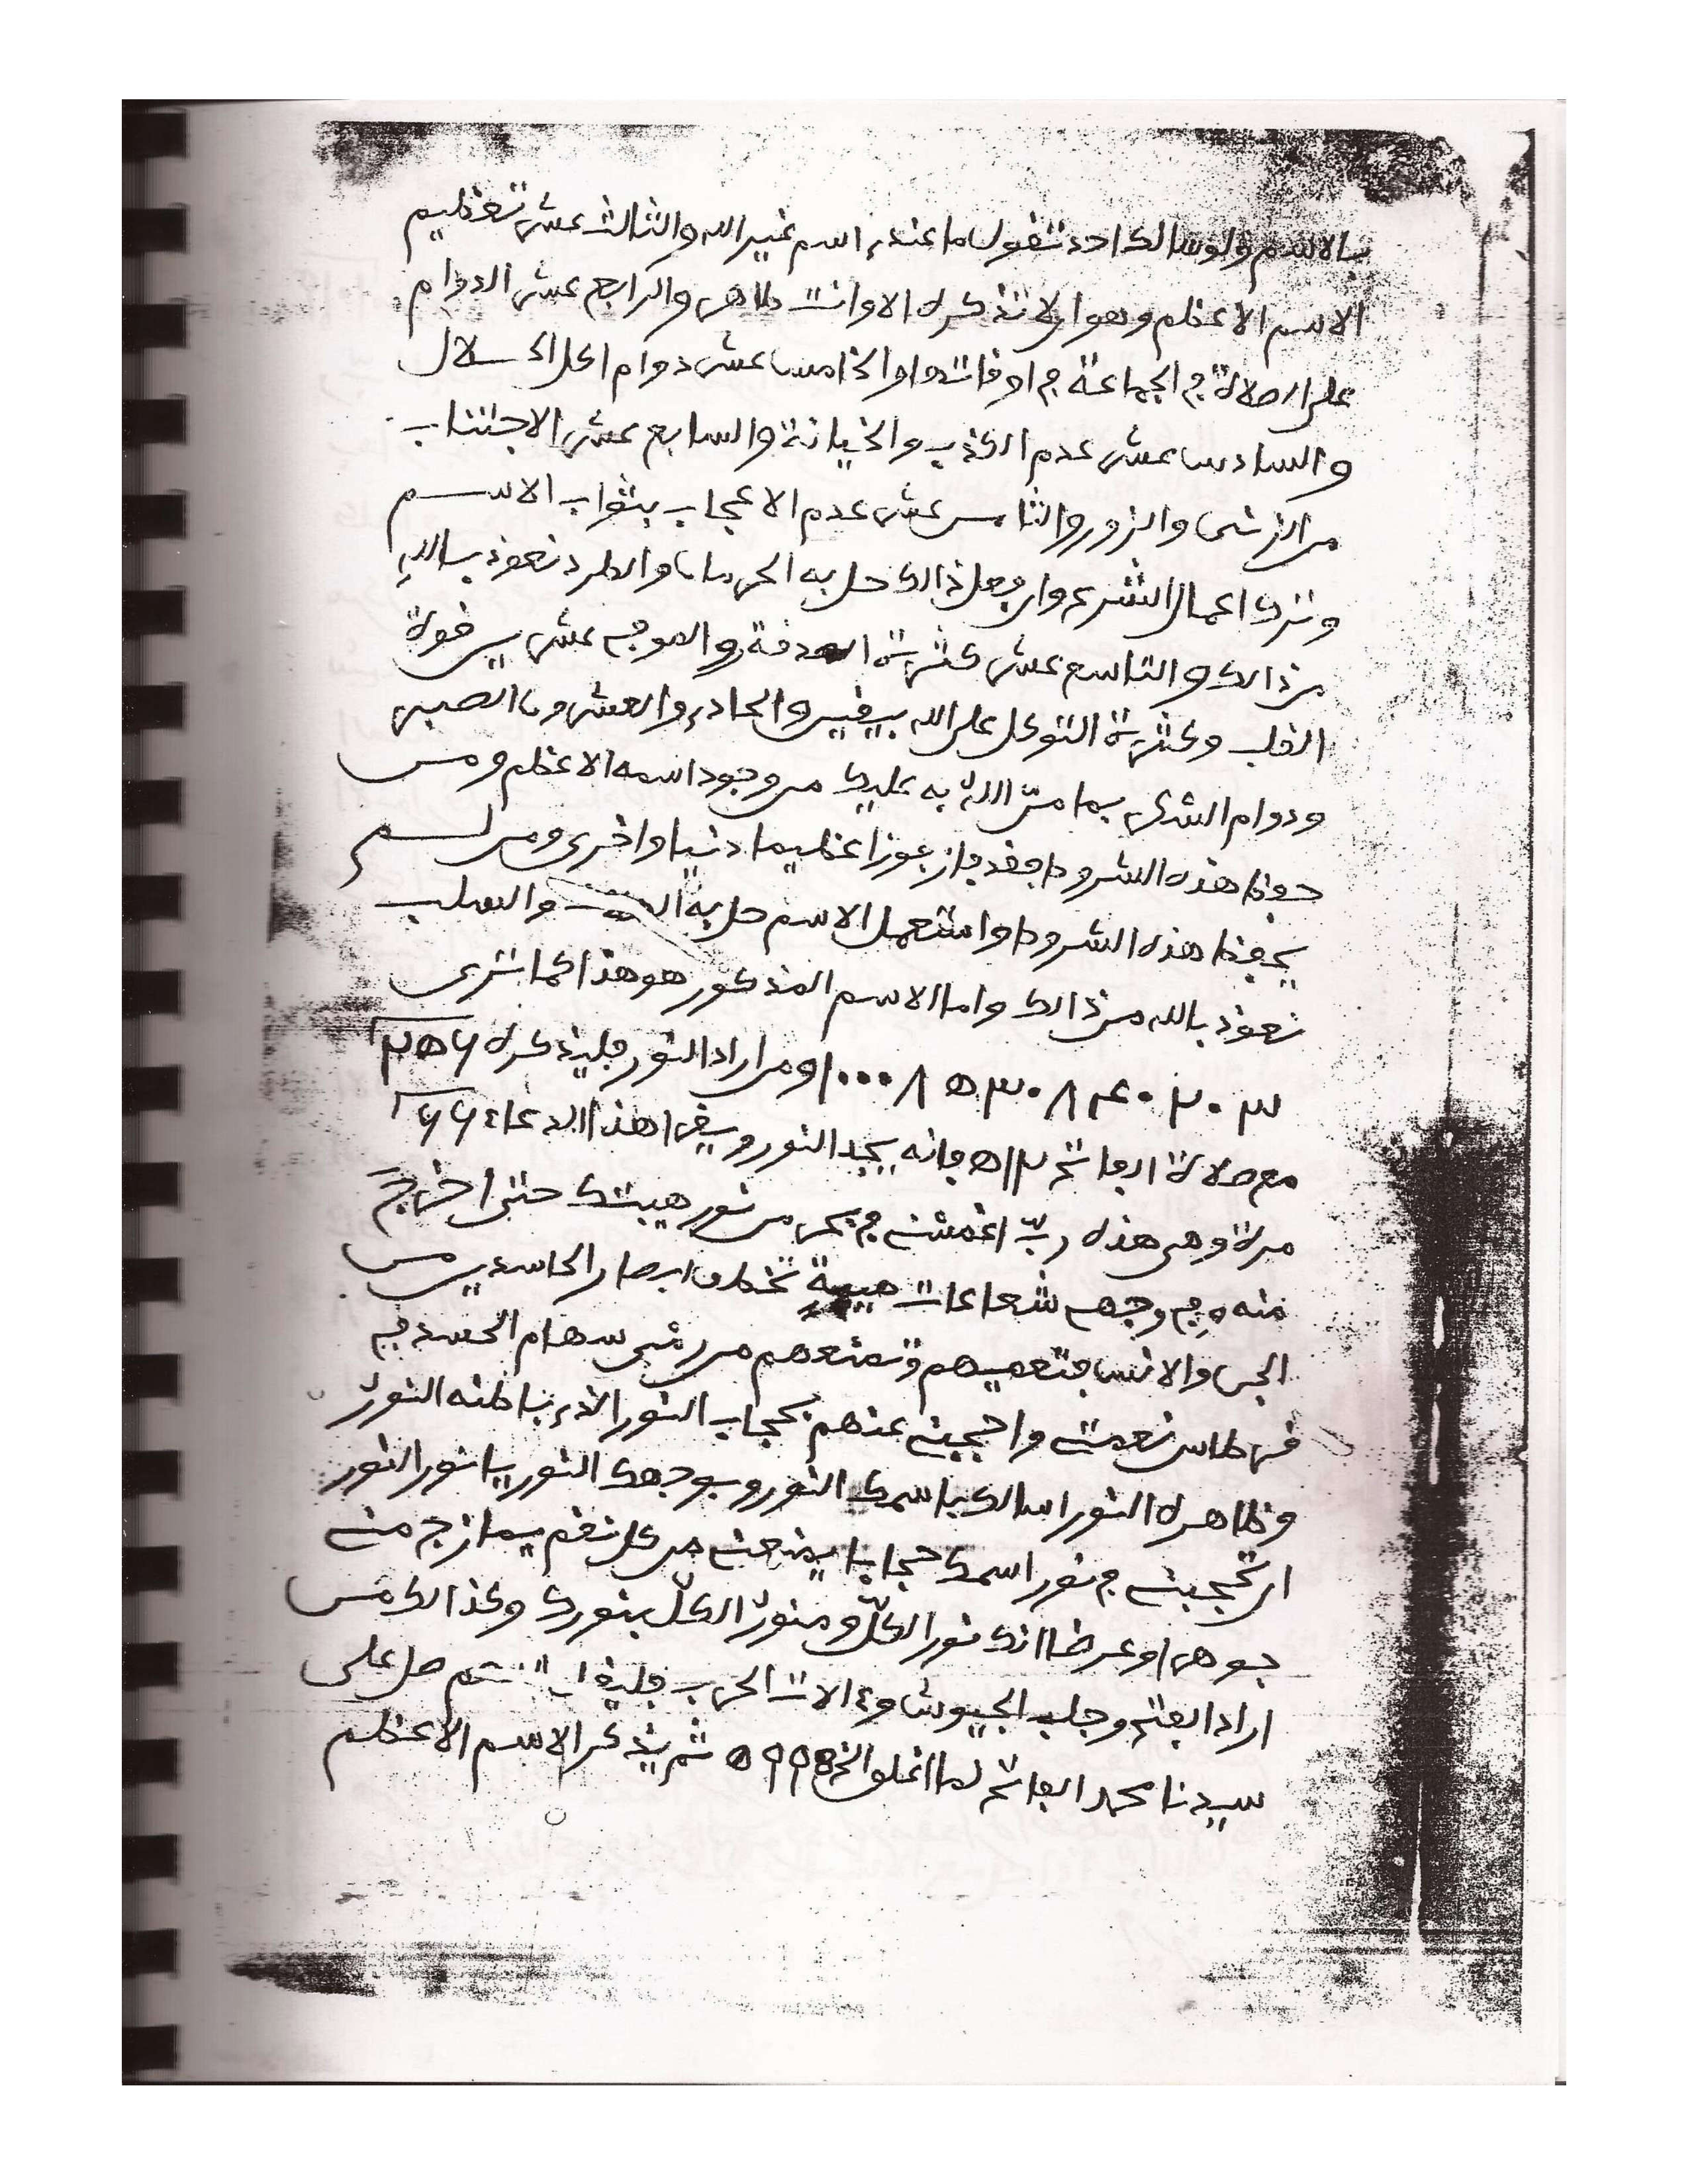 بالاسم ولو سالك احد تقول ما عندي اسم غير الله والثالث عشر تعظيم
الاسم الاعظم وهو ان لا تذكره الا وانت طاهر والرابع عشر الدوام
على الصلاة في الجماعة في اوقاتها والخامس عشر دوام اكل الحلال
والسادس عشر عدم الكذب والخيانة والسابع عشر الاجتناب
من الزنى والزور والثامن عشر عدم الاعجاب بثواب الاسم
وترك اعمال الشرع وان فعل ذالك حل به الحرمان والطرد نعوذ بالله
من ذالك والتاسع عشر كثرة الصدقة والموفي عشرين قوة
القلب وكثرة التوكل على الله بيقين والحادي والعشرون الصبر
ودوام الشكر بما منّ الله به عليك من وجود اسمه الاعظم ومن
حفظ هذه الشروط فقد فاز فوزا عظيما دنيا واخرى ومن لم
يحفظ هذه الشروط واستعمل الاسم حل به والسلب
نعوذ بالله من ذالك واما الاسم المذكور هو هذا كما ترى
ومن اراد النور فليذكره
مع صلاة الفاتح فانه يجد النور ويقرا هذا الدعاء ٦٦
مرة وهي هذه ربّ اغمسني في بحر من نور هيبتك حتى اخرج
منه وفي وجهي شعاعات هيبة تخطف ابصار الحاسدين من
الجن والانس فتعميهم وتمنعهم من رمي سهام الحسد في
قرطاس نعمتي واحجبني عنهم بحجاب النور الذي باطنه النور
وظاهره النور اسالك باسمك النور وبوجهك النور يا نور النور
ان تحجبني في نور اسمك حجابا يمنعني من كل نقص يمازج مني
جوهرا وعرضا انك نور الكلّ ومنور الكلّ بنورك وكذالك من
اراد الفتح وجلب الجيوش وءالات الحرب صل على
سيدنا محمد الفاتح لما اغلق الخ ثم يذكر الاسم الاعظم